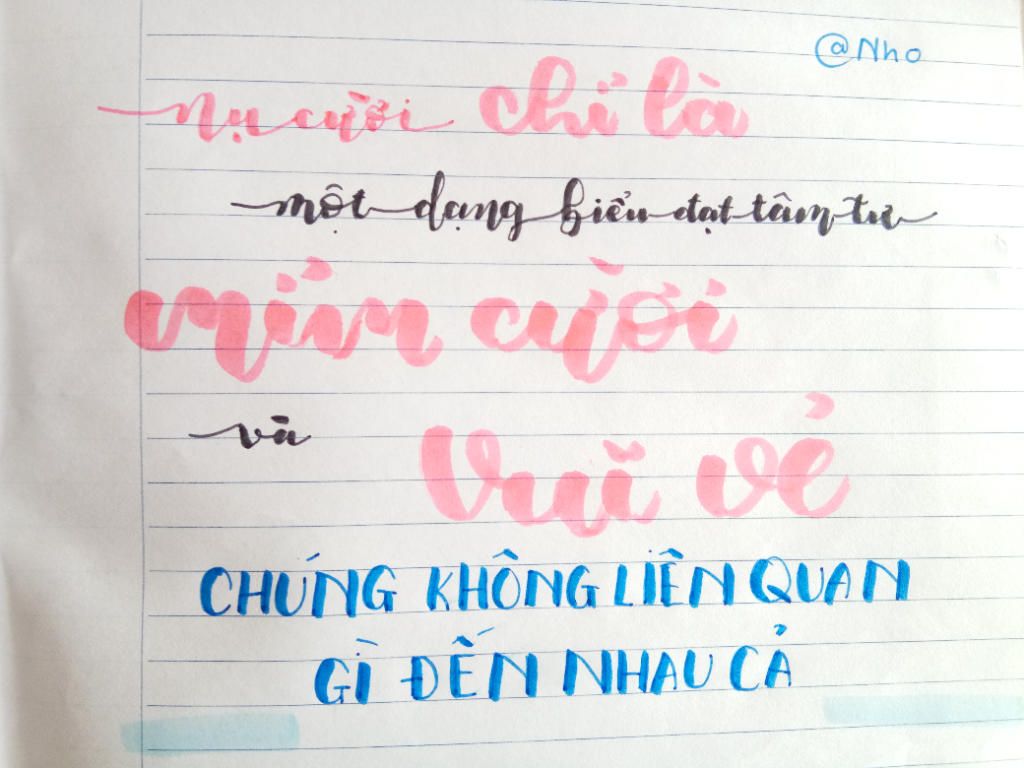 @Nho
Nụ cười chỉ là
một dạng biểu đạt tâm tư
mỉm cười
và vui vẻ
CHÚNG KHÔNG LIÊN QUAN
GÌ ĐẾN NHAU CẢ